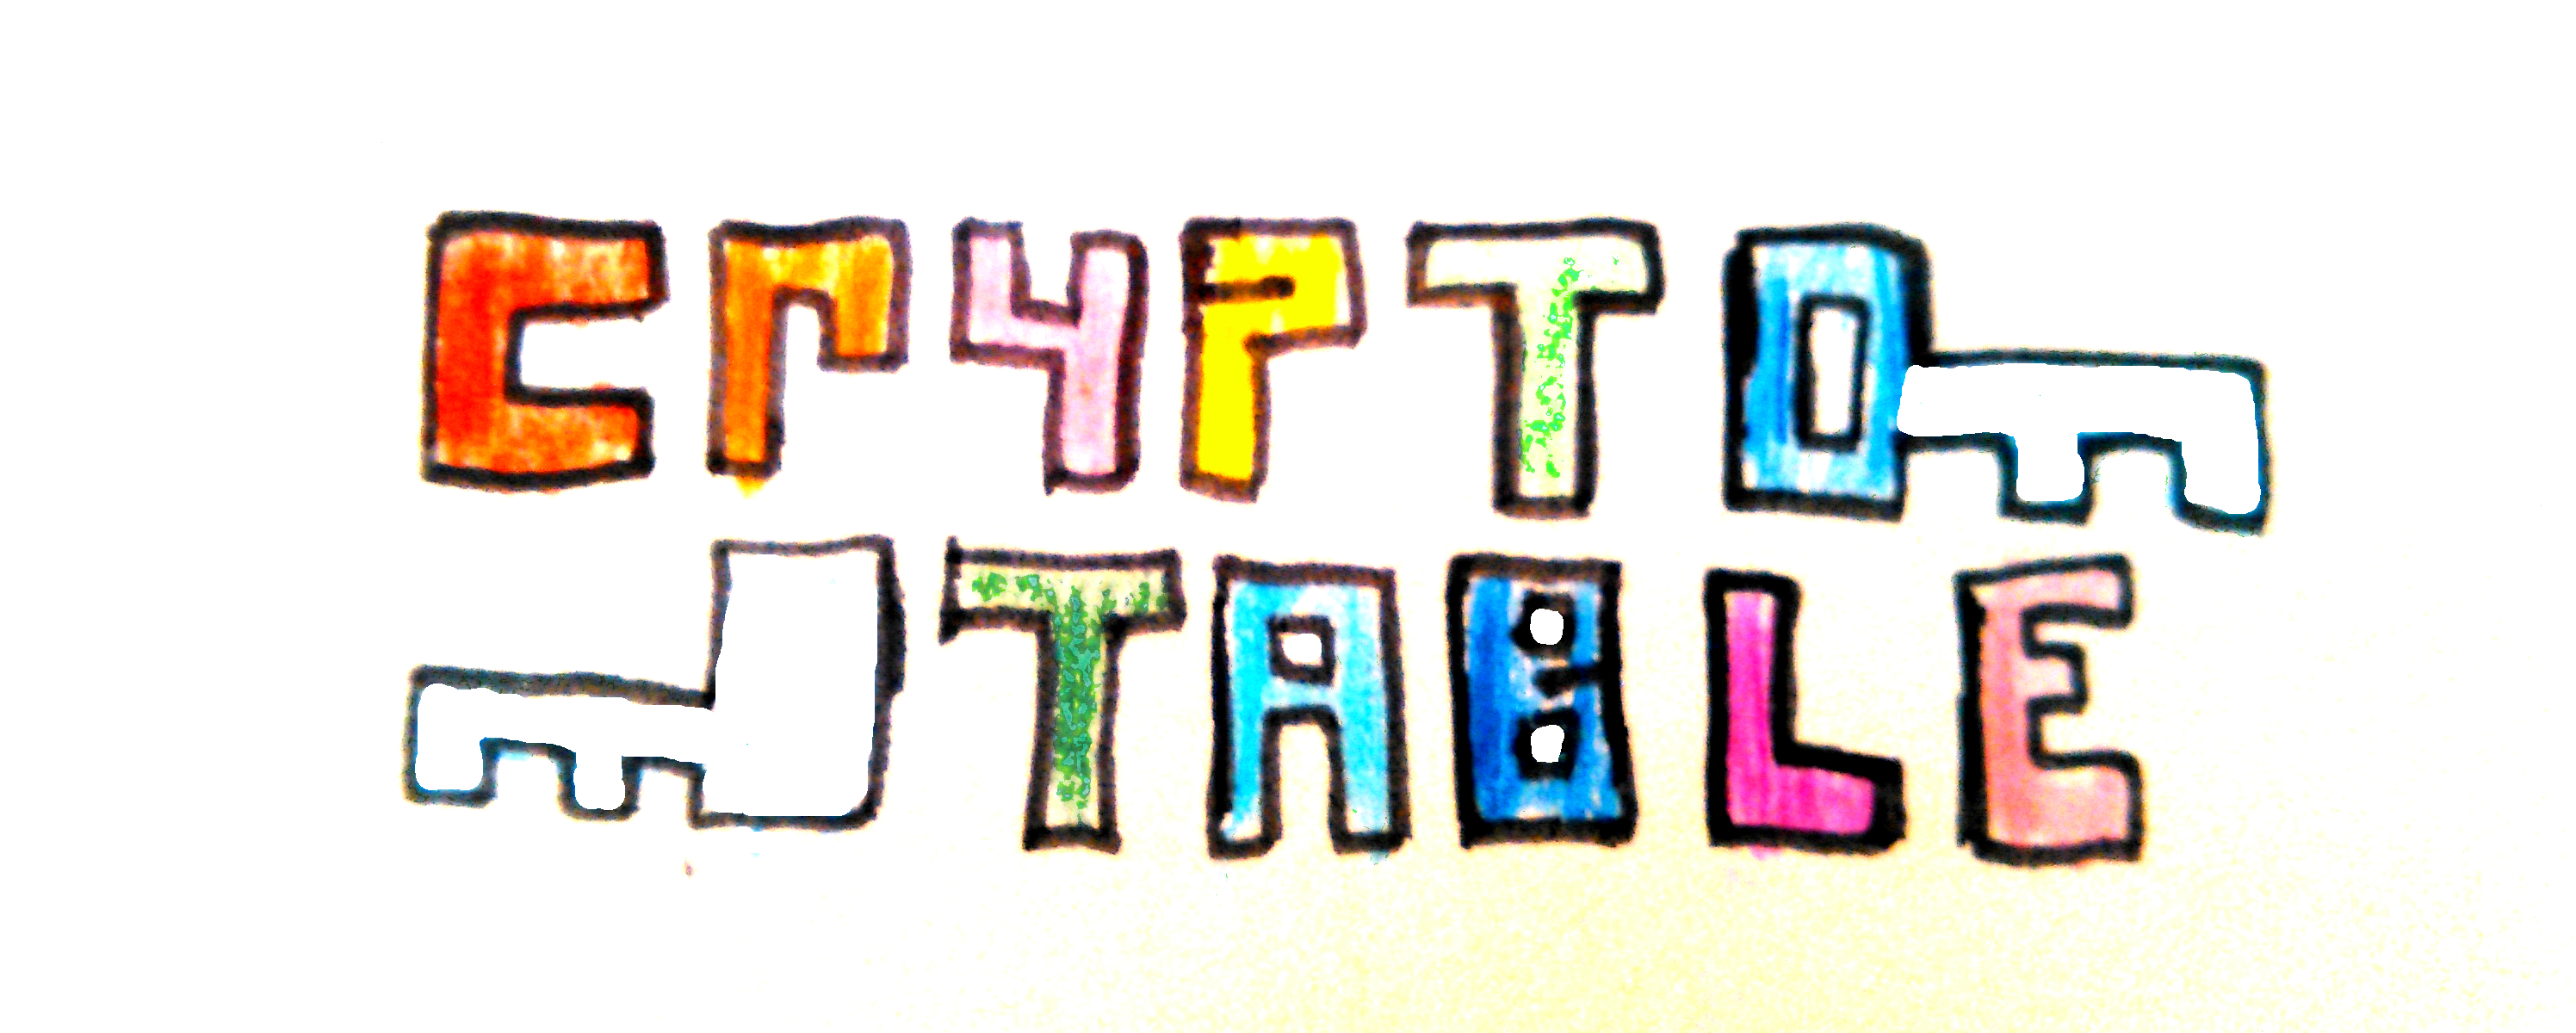 CrYPTO
TABLE